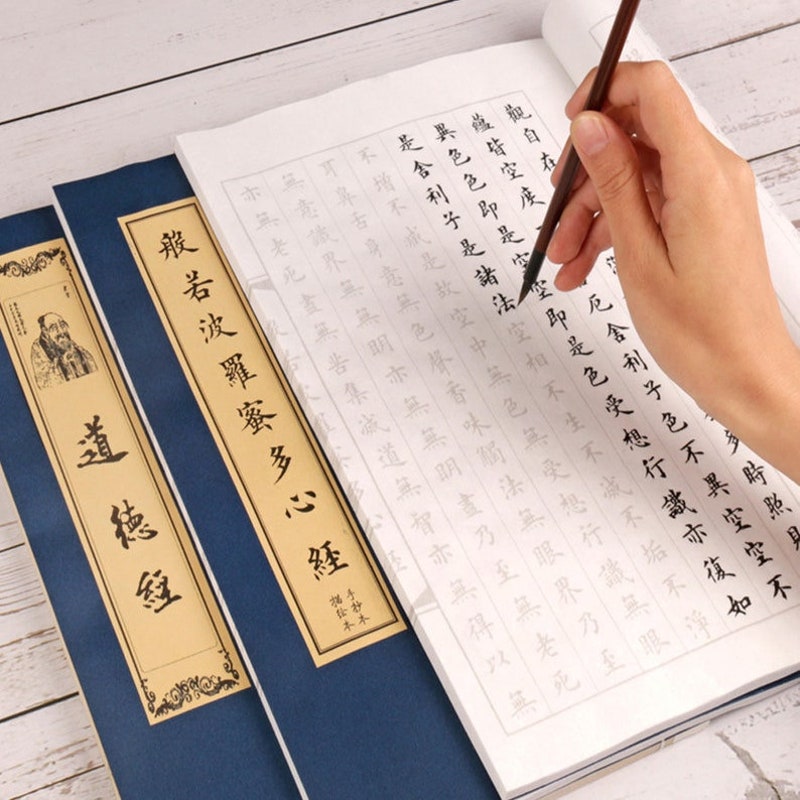 觀自在
多時照見
蘊皆空度
厄舍利子色不異空空不
異色色即是空空即是色受想行識亦復如
是舍利子是諸法空相不生不滅不垢不淨
不增不減是故空中無色無受想行識無眼
耳鼻舌身意無色聲香味觸法無眼界乃至
無意識界無無明亦無無明盡乃至無老死
亦無老死盡無苦集滅道無智亦無得以無
般若波羅蜜多心經
手抄本
描绘本
道德經